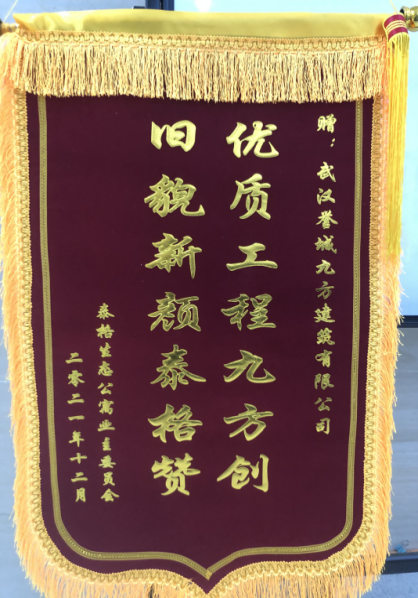 赠：武汉誉城九方建筑有限公司
优质工程九方创
旧貌新颜泰格赞
泰格生态公寓业主委员会
二零二一年十二月